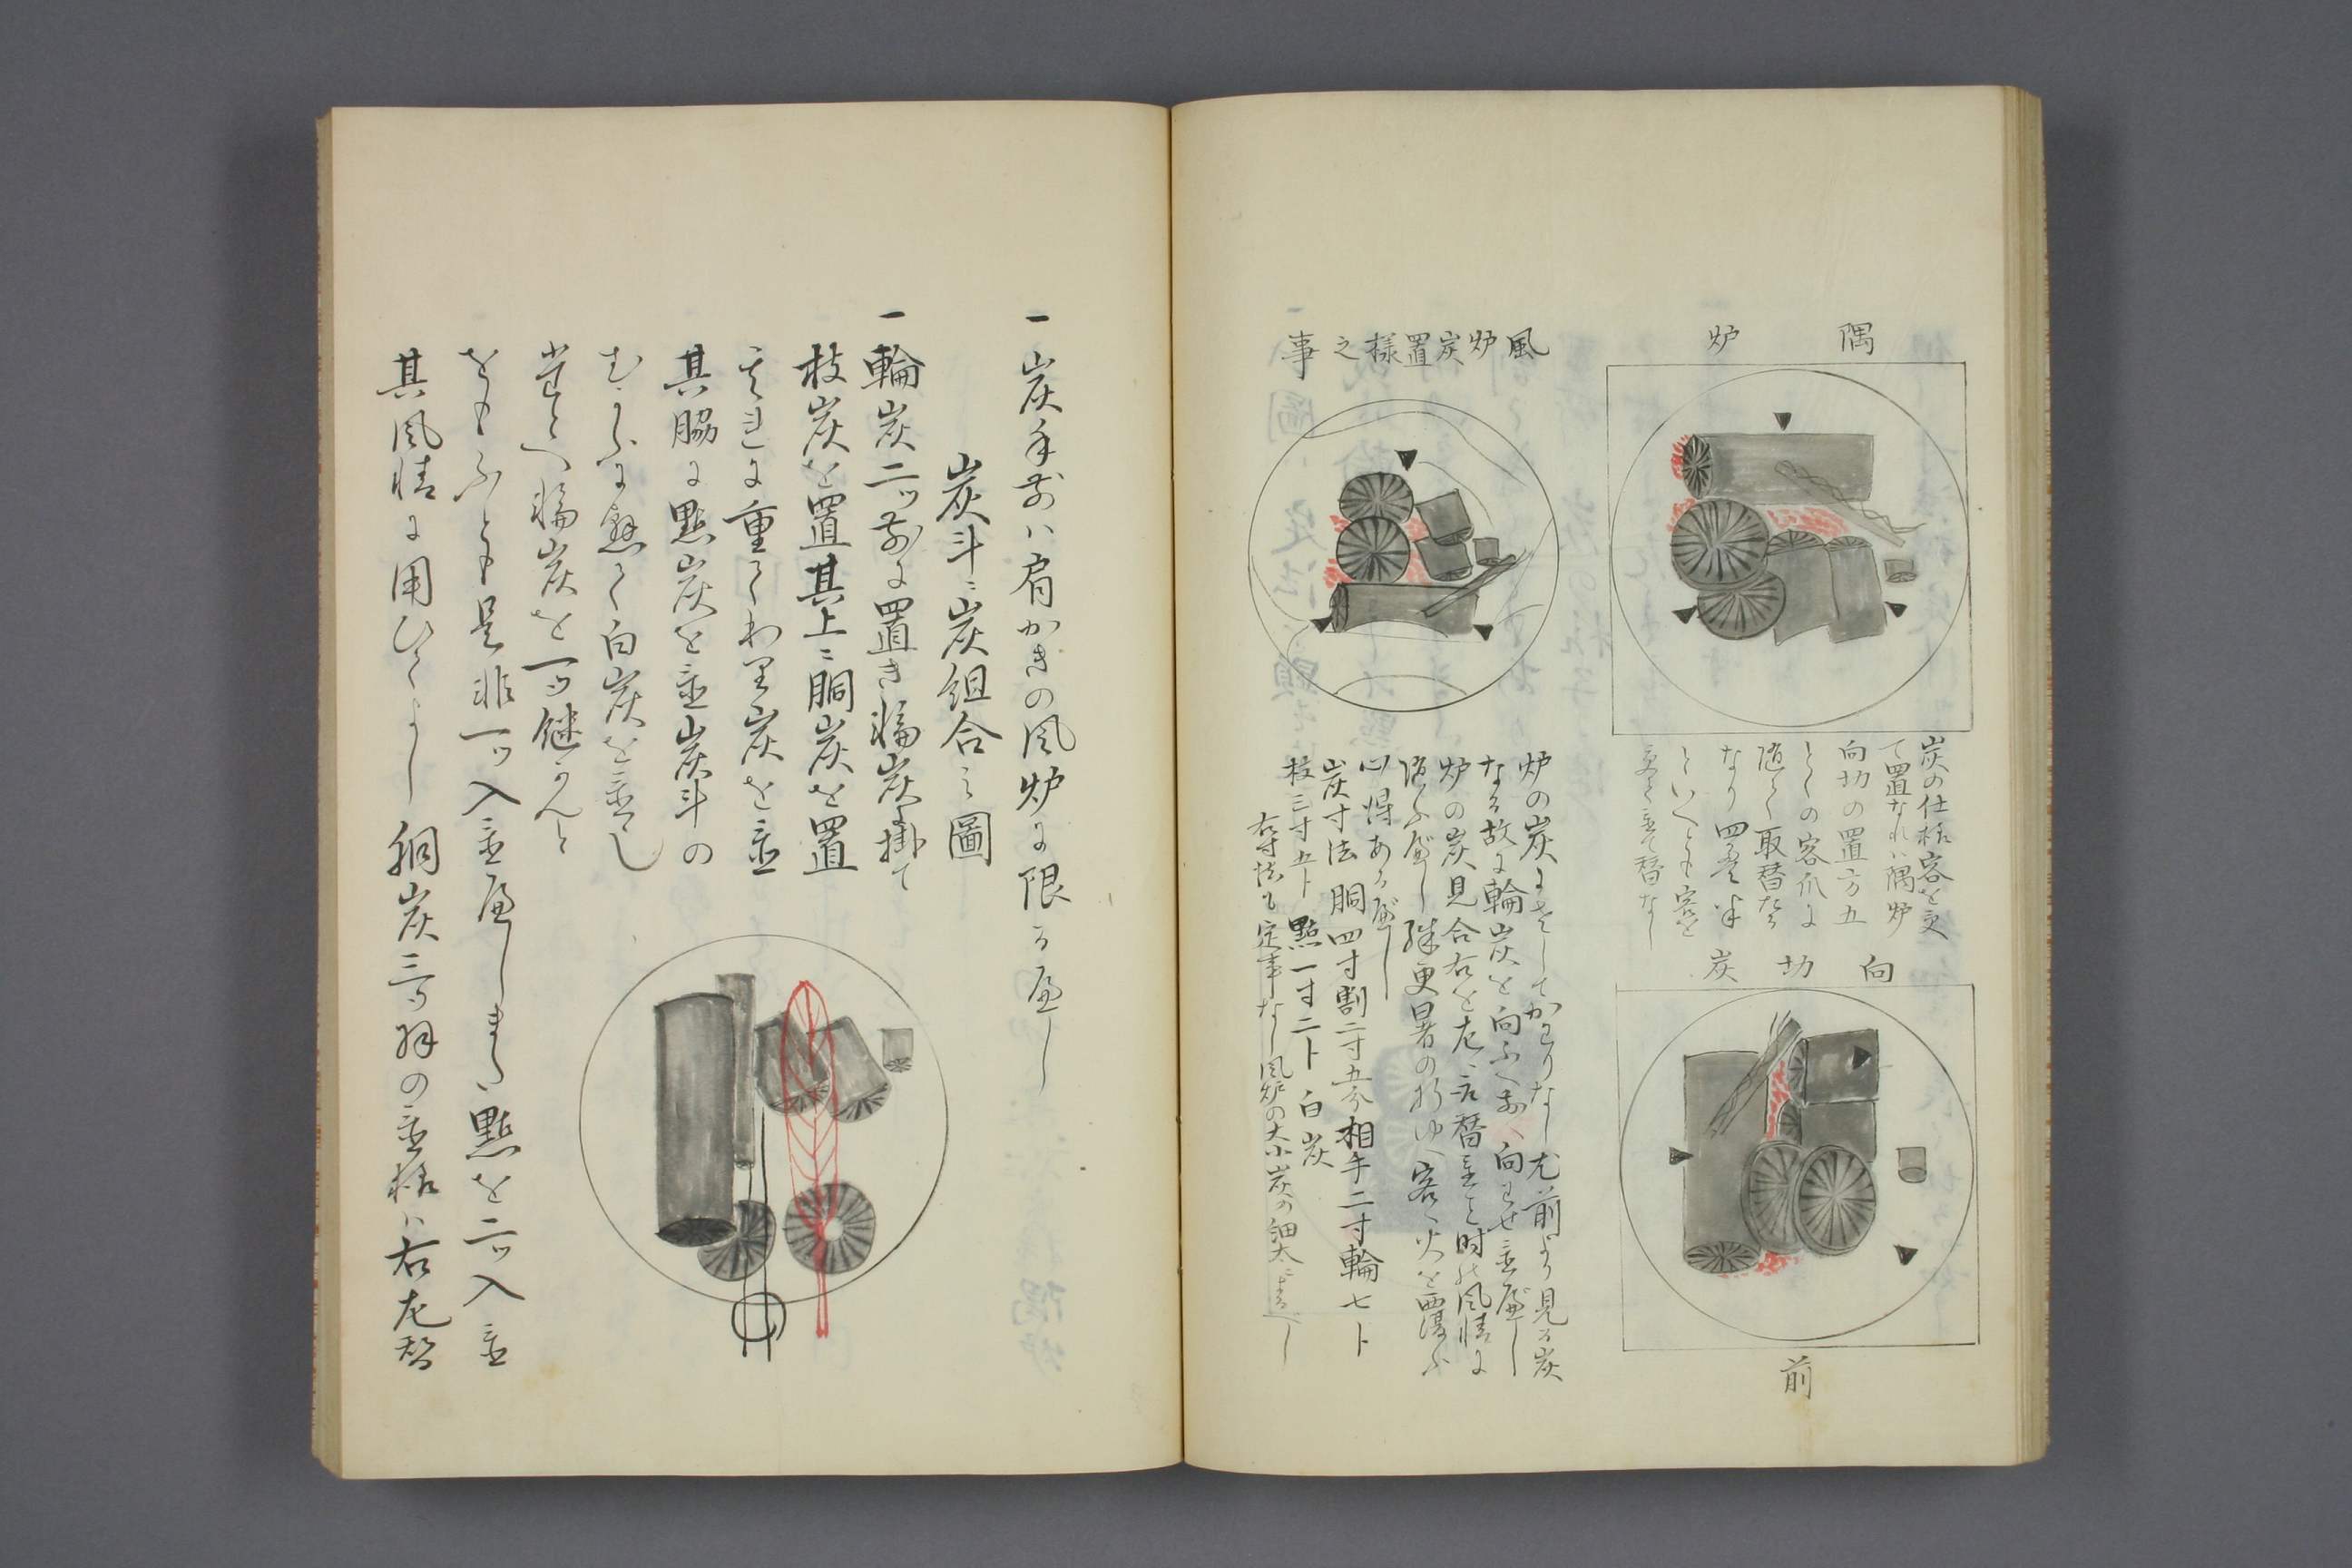 隅炉
炭の仕様客を受
て置なれハ隅炉
向切の置方五
とくの客爪に
随て取替なる
なり四畳半
といへとも客を
受て置て替なし
向切炭
前
風炉炭置様之事
炉の炭にさしてかわりなし尤前より見る炭
なる故に輪炭を向ふへ前へ向わせ置へし
炉の炭見合右を左へ言替置と時の風情に
随ふへし殊更暑の折ゆへ客へ火を覆ふ
心得あるへし
炭寸法 胴四寸割二寸五分相手二寸輪七ト
枝三寸五ト 點一寸二ト 白炭
右寸法も定事なし風炉の大小炭の細太によるへし
一 炭手前ハ肩かきの風炉に限るへし
炭斗ニ炭組合之圖
一 輪炭二ッ前に置き輪炭に掛て
枝炭を置其上ニ胴炭を置
それに重てわり炭を置
其脇に點炭を置炭斗の
むかふに懸て白炭を置へし
輪炭を一ッ継かんと
をもふとも是非一ッ入置へしまた點を二ッ入置
其風情に用ひてよし 胴炭三ッ羽の置様ハ右左